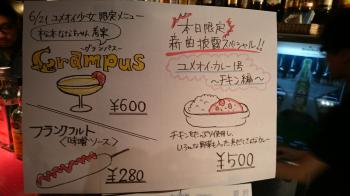 6/21 ユメオイ少女 限定メニュー
松本ななちゃん 考案
グランパス
Grampus
¥600
フランクフルト
〈味噌ソース〉
¥280
本日限定
新曲披露スペシャル!!
ユメオイカレー1号
〜チキン編〜
チキンをたっぷり使用し、
いろんな野菜も入った
¥500